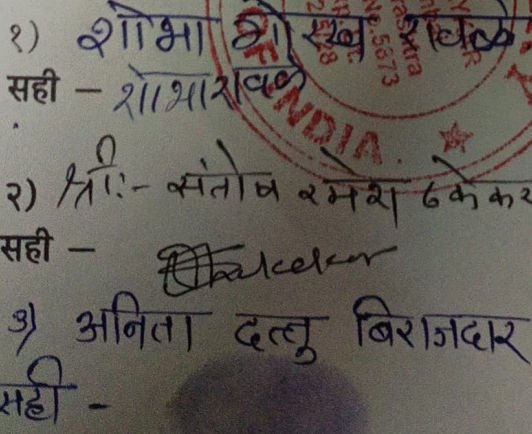 १) शोभा गोरख रावळे
सही - शोभा रावळे
२) श्री:- संतोष रमेश ठकेकर
सही -
३) अनिता दत्तु बिराजदार
सही -
INDIA.